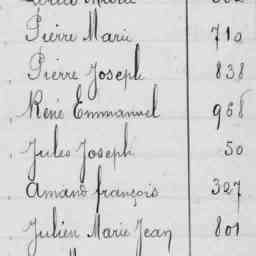 Pierre Marie 710
Pierre Joseph 838
René Emmanuel 968
Jules Joseph 50
Amand françois 327
Julien Marie Jean 801